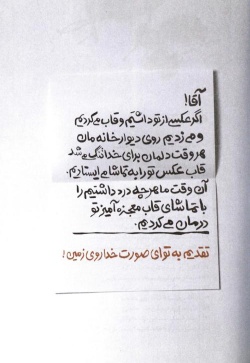 آقا!
اگر عکسی از تو داشتیم و قاب می‌کردیم
و می‌زدیم روی دیوار خانه مان
هر وقت دلمان برای خدا تنگ می‌شد
قاب عکس تو را به تماشا می‌ایستادیم.
آن وقت ما هرچه درد داشتیم را
با تماشای قاب معجزه آمیز تو
درمان می‌کردیم.
تقدیم به تو ای صورت خدا روی زمین!